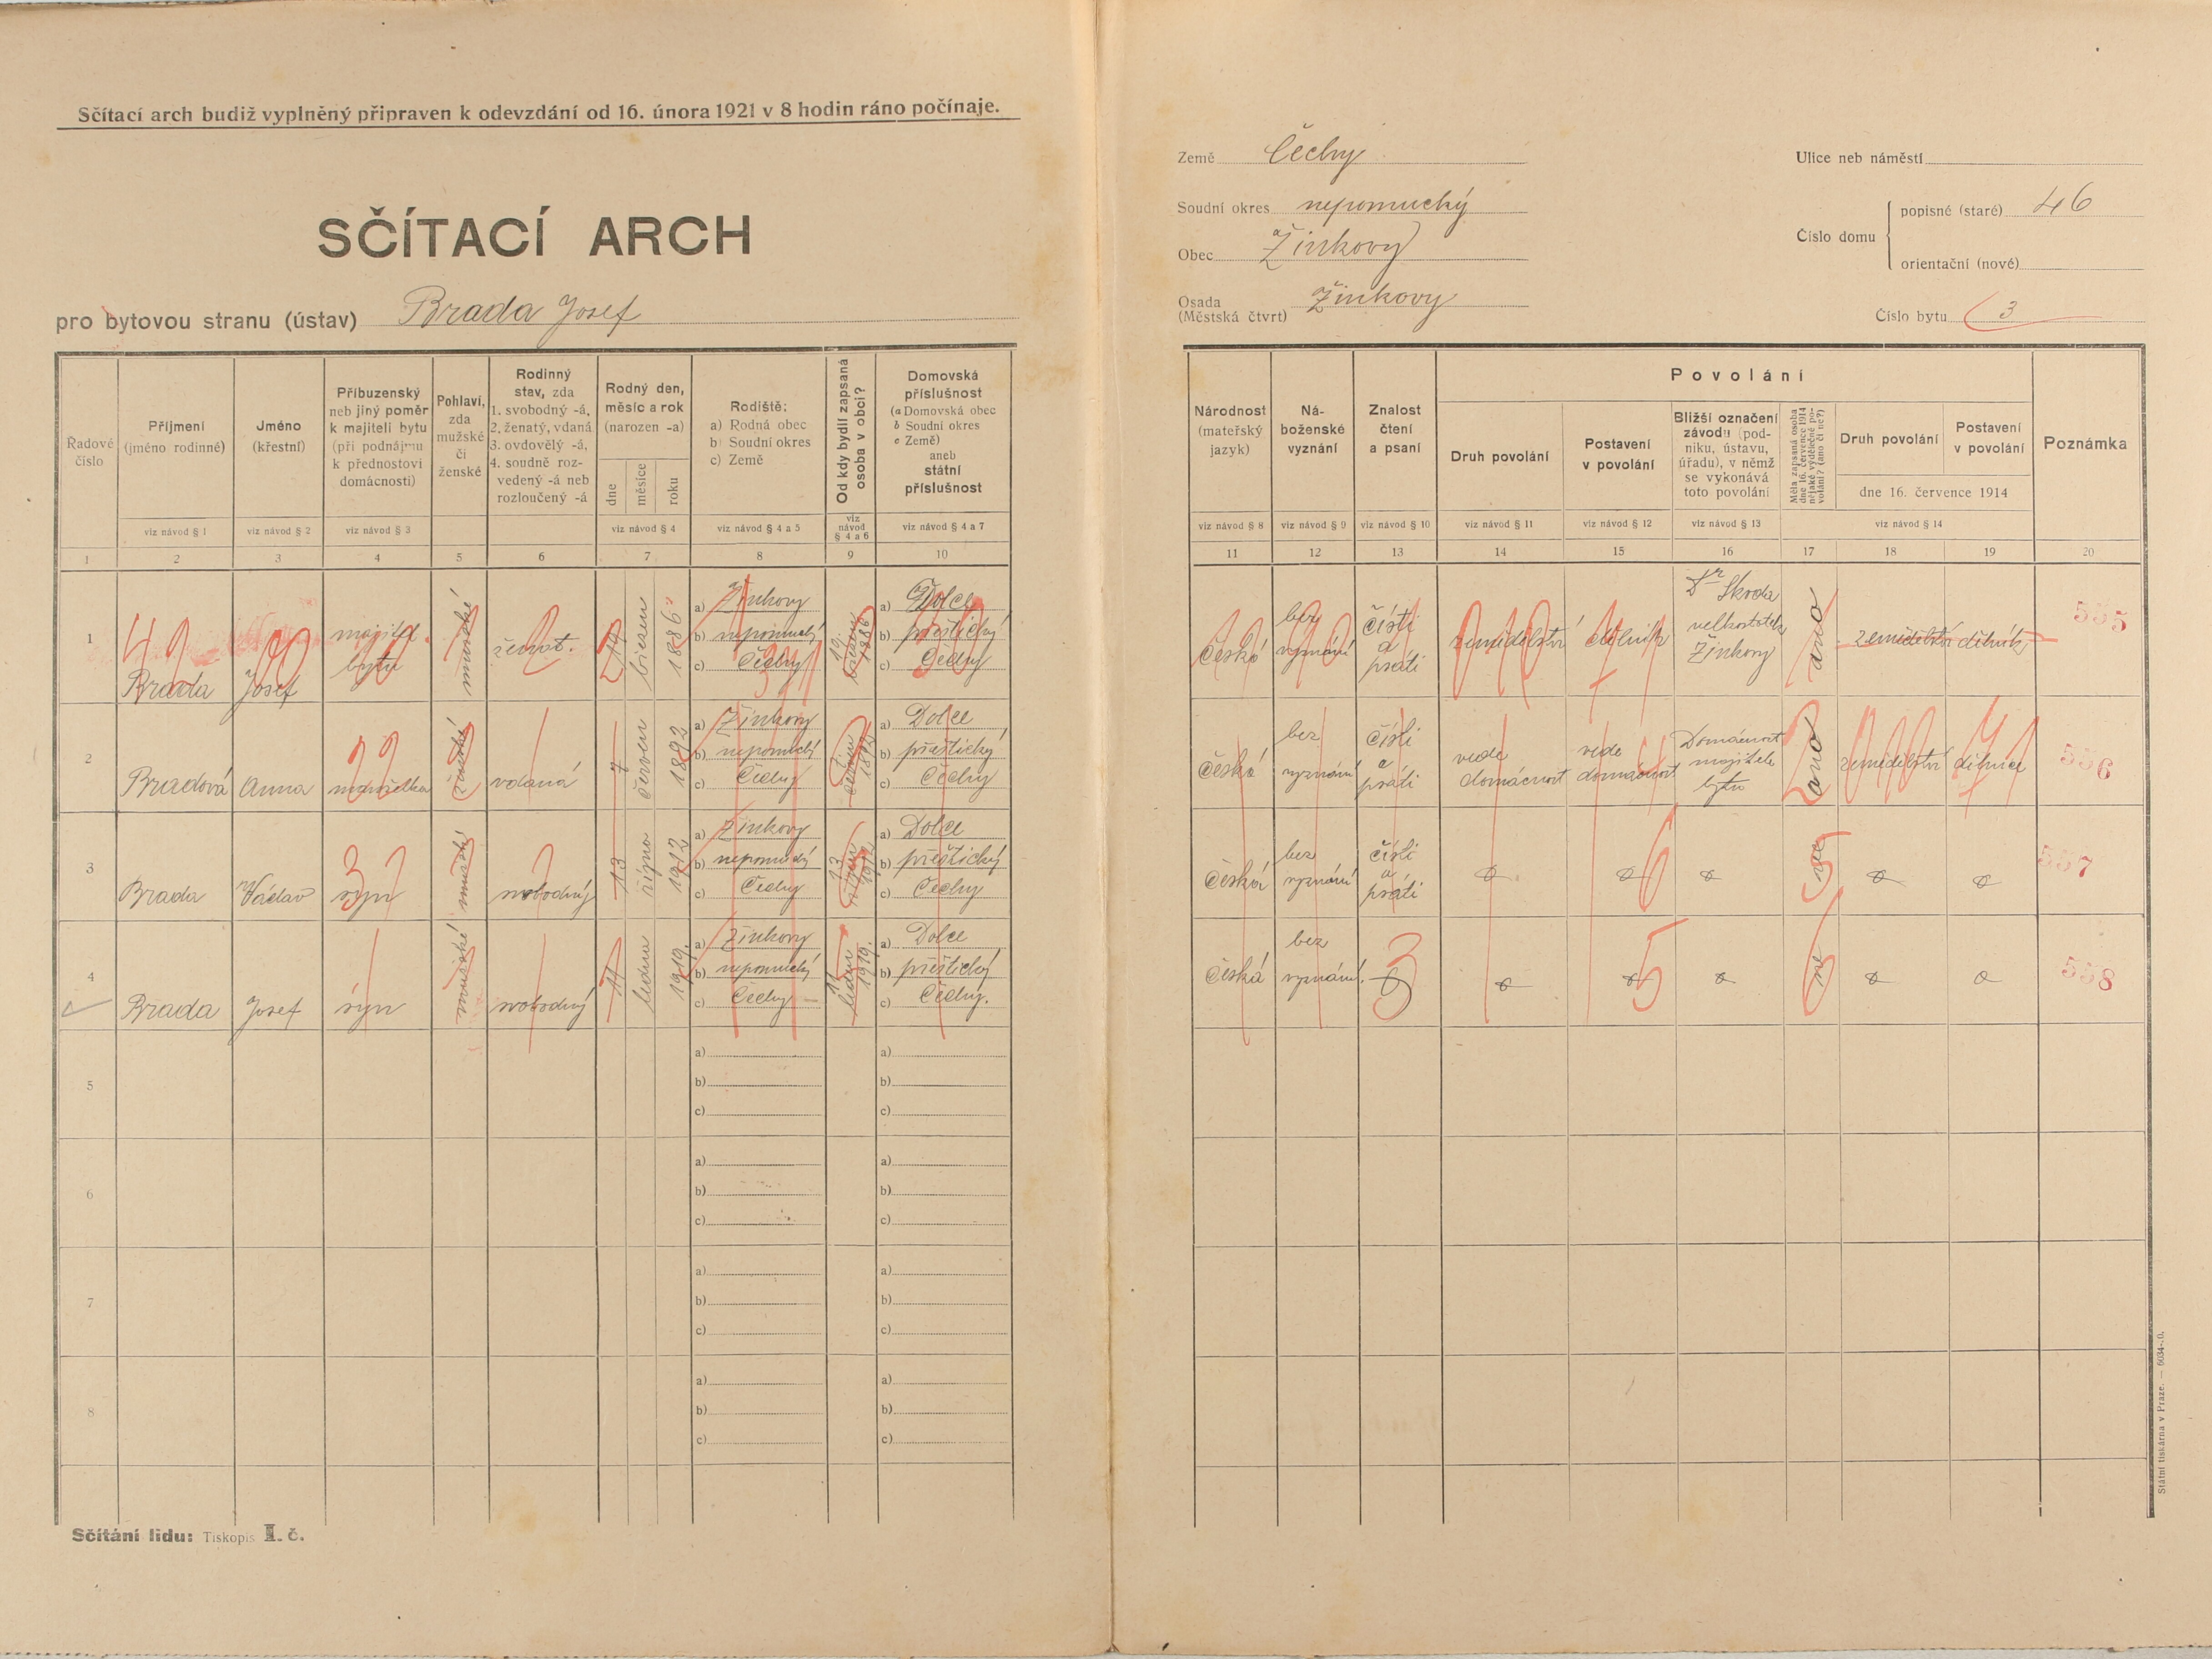 Sčítací arch budiž vyplněný připraven k odevzdání od 16. února 1921 v 8 hodin ráno počínaje.
SČÍTACÍ ARCH
pro bytovou stranu (ústav) Brada Josef
Země Čechy
Soudní okres nepomucký
Obec Žinkovy
Osada Žinkovy
(Městská čtvrt)
Ulice neb náměstí
Číslo domu
popisné (staré) 46
orientační (nové)
Číslo bytu 3
Řadové číslo
Příjmení (jméno rodinné)
Jméno (křestní)
Příbuzenský neb jiný poměr k majiteli bytu (při podnájmu k přednostovi domácnosti)
Pohlaví, zda mužské či ženské
Rodinný stav, zda 1. svobodný -á, 2. ženatý, vdaná 3. ovdovělý -á, 4. soudně rozvedený -á neb rozloučený -á
Rodný den, měsíc a rok (narozen -a)
dne měsíce roku
Rodiště: a) Rodná obec b) Soudní okres c) Země
Od kdy bydlí zapsaná osoba v obci?
Domovská příslušnost (a Domovská obec b Soudní okres c Země) aneb státní příslušnost
Národnost (mateřský jazyk)
Náboženské vyznání
Znalost čtení a psaní
Povolání
Druh povolání
Postavení v povolání
Bližší označení závodu (podniku, ústavu, úřadu), v němž se vykonává toto povolání
Měla zapsaná osoba dne 16. července 1914 nějaké výdělečné povolání? (ano či ne?)
Druh povolání
Postavení v povolání
dne 16. července 1914
Poznámka
viz návod § 1 viz návod § 2 viz návod § 3 viz návod § 4 viz návod § 4 a 5 viz návod § 4 a 6 viz návod § 4 a 7
viz návod § 8 viz návod § 9 viz návod § 10 viz návod § 11 viz návod § 12 viz návod § 13 viz návod § 14
1 2 3 4 5 6 7 8 9 10 11 12 13 14 15 16 17 18 19 20
1 Brada Josef majitel bytu mužské ženat. 19 březen 1886
a) Žinkovy
b) nepomucký
c) Čechy
19. březen 1886
a) Dolce
b) přeštický
c) Čechy
česká bez vyznání čísti a psáti zemědělství dělník Dr Škoda velkostatek Žinkovy ano zemědělství dělník 555
2 Bradová Anna manželka ženské vdaná 7 červen 1892
a) Žinkovy
b) nepomucký
c) Čechy
7 červen 1892
a) Dolce
b) přeštický
c) Čechy
česká bez vyznání čísti a psáti vede domácnost vede domácnost Domácnost majitele bytu ano zemědělství dělnice 556
3 Brada Václav syn mužský svobodný 13 října 1912
a) Žinkovy
b) nepomucký
c) Čechy
13 1912
a) Dolce
b) přeštický
c) Čechy
česká bez vyznání čísti a psáti ne 557
4 Brada Josef syn mužské svobodný 11 leden 1919.
a) Žinkovy
b) nepomucký
c) Čechy
leden 1919.
a) Dolce
b) přeštický
c) Čechy.
česká bez vyznání. ne 558
5
a)
b)
c)
a)
b)
c)
6
a)
b)
c)
a)
b)
c)
7
a)
b)
c)
a)
b)
c)
8
a)
b)
c)
a)
b)
c)
Sčítání lidu: Tiskopis I. č.
Státní tiskárna v Praze. — 6034-.0.